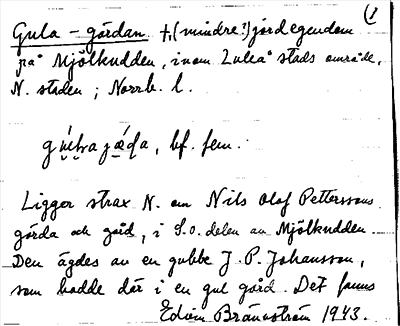 (1
Gula-gärdan †, (mindre?) jordegendom
på Mjölkudden, inom Luleå stads område,
N. staden; Norrb. l.
bf. fem.
Ligger strax N. om Nils Olof Petterssons
gärda och gård, i S.o. delen av Mjölkudden.
Den ägdes av en gubbe J. P. Johansson,
som hadde där i en gul gård. Det fanns
Edvin Brännström 1943.